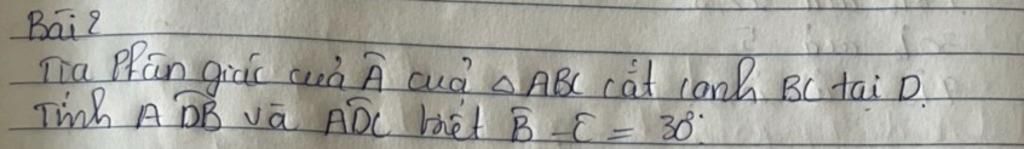 Bài 2
Tia Phân giác của Â của △ ABC cắt cạnh BC tại D.
Tính A D̂B và AD̂C biết B̂ - Ĉ = 30°.